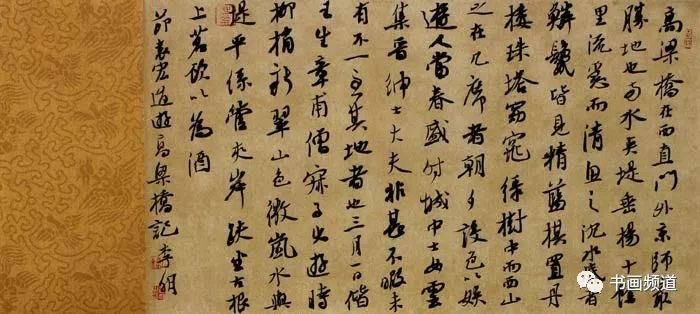 高梁橋在西直門外京師最
勝地也兩水夾堤垂楊十餘
里流急而清魚之沉水底者
鱗鬣皆見精藍棋置丹
樓珠塔窈窕綠樹中而西山
之在几席者朝夕設色以娛
遊人當春盛时城中士女雲
集晉紳士大夫非甚不暇未
有不一至其地者也三月一日偕
王生章甫僧寂子出遊時
柳梢新翠山色微嵐水與
堤平絲管夾岸趺坐古根
上茗飲以為酒
節袁宏道遊高梁橋記 李
书画频道